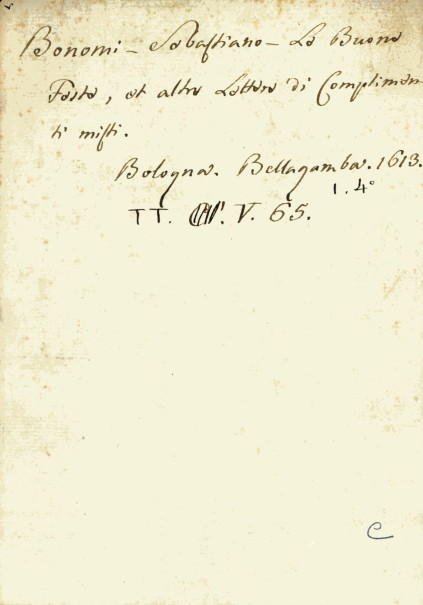 Bonomi - Sebastiano - Le Buone
Feste, et altre Lettere di Complimen-
ti misti.
Bologna. Bellagamba. 1613.
1. 4°
TT. V. 65.
C